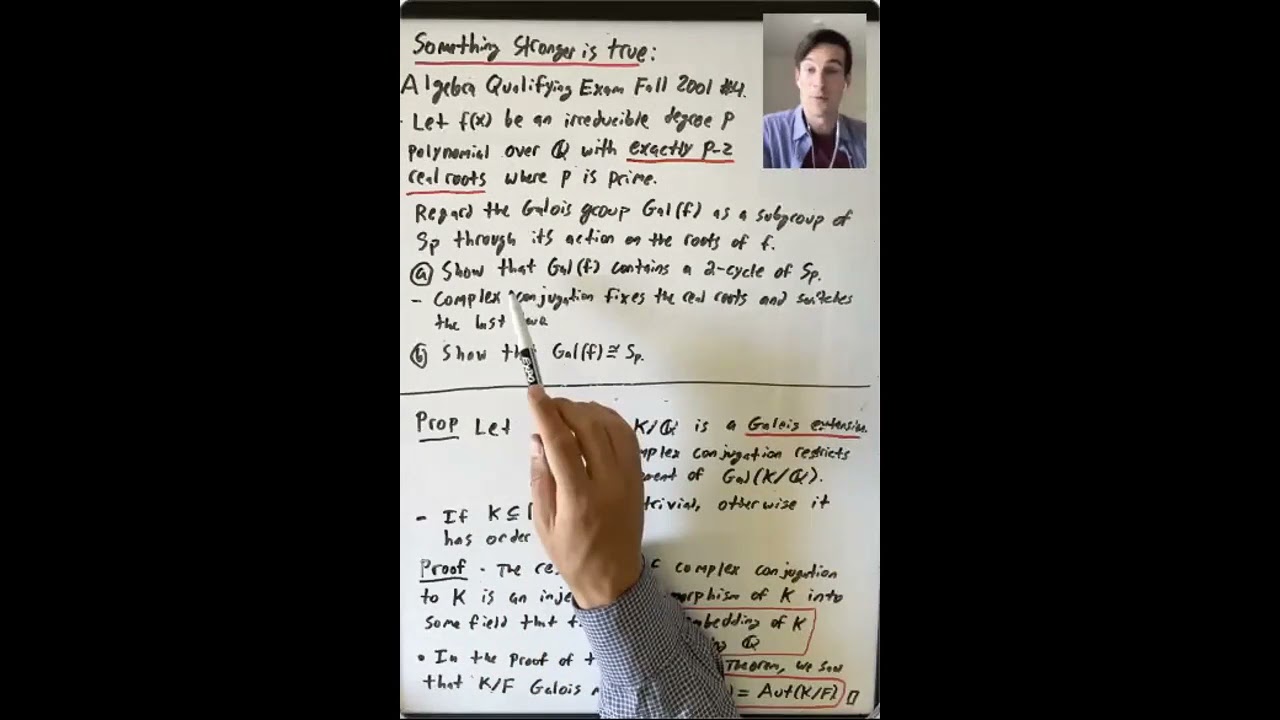 Something Stronger is true:
Algebra Qualifying Exam Fall 2001 #4.
- Let f(x) be an irreducible degree P
polynomial over Q with exactly P-2
real roots where P is prime.
Regard the Galois group Gal(f) as a subgroup of
Sp through its action on the roots of f.
(a) Show that Gal(f) contains a 2-cycle of Sp.
- Complex conjugation fixes the real roots and switches
the last
(b) Show Gal(f) ≅ Sp.
Prop Let K/Q is a Galois extension.
conjugation restricts
of Gal(K/Q).
- If K ⊆ trivial, otherwise it
has order
Proof - The complex conjugation
to K is an of K into
some field that of K
Q
• In the Proof of Theorem, we saw
that K/F Galois = Aut(K/F) □
EXPO